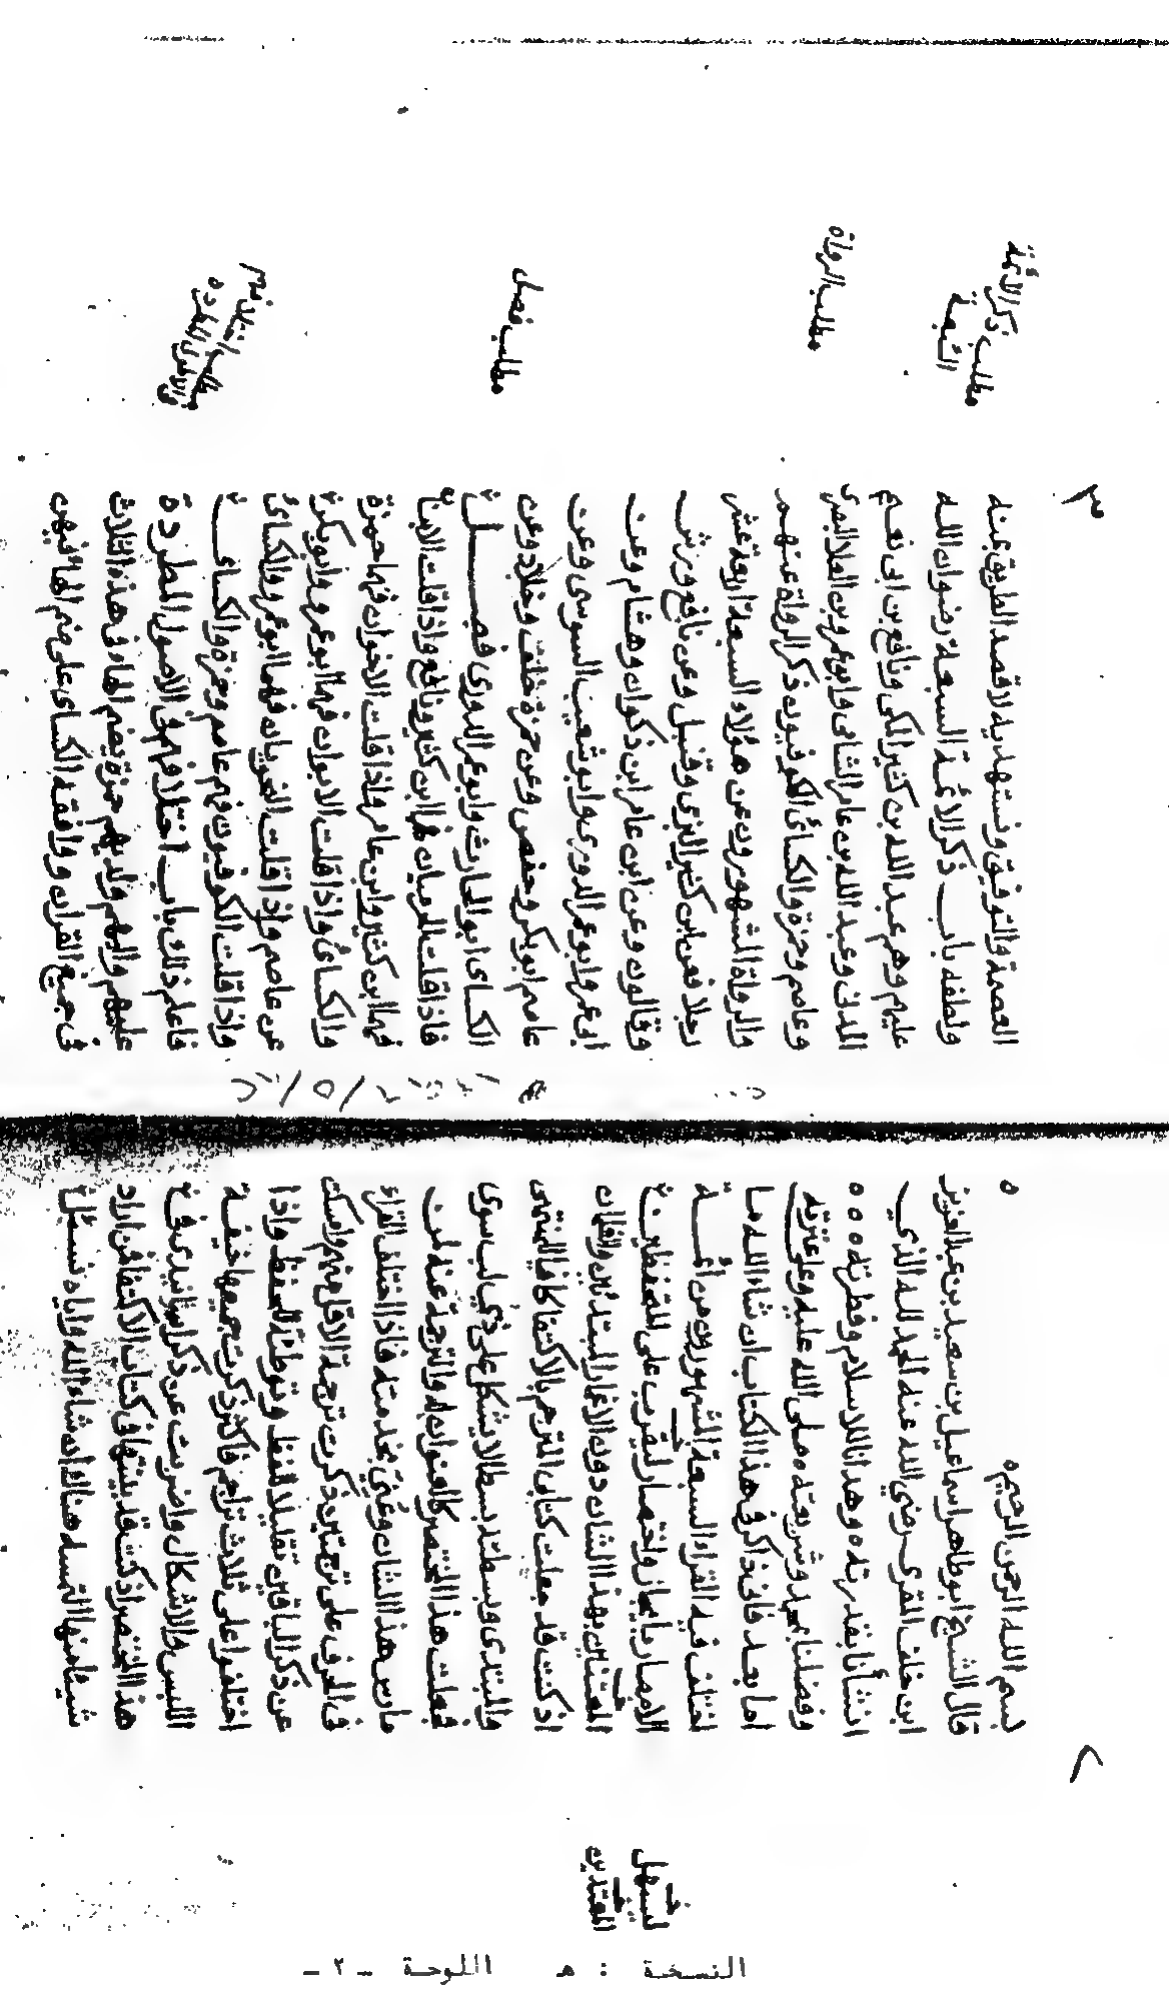 ٢
بسم الله الرحمن الرحيم ه
قال الشيخ ابو طاهر اسماعيل بن سعيد بن عبد العزيز
ابن خلف المقرى رضي الله عنه الحمد لله الذي
انشأنا بقدرته وهدانا للاسلام وفطرته ه ه ه
وفضلنا بمحمد وشريعته صلى الله عليه وعلى عترته
اما بعد فانى ذاكر فى هذا الكتاب ان شاء الله ما
اختلف فيه القراء السبعة المشهورون من ائمة
الامصار بايجاز واختصار ليقرب على المتحفظين
المعتنين بهذا الشان دون الاغمار المبتدئين والغلمان
اذ كنت قد جعلت كتابى المترجم بالاكتفا كافيا للمنتهى
والمبتدى وبسطته بسطا لا يشكل على ذي لب سوى
فجعلت هذا المختصر كالعنوان له والترجمة عنه لمن
مارس هذا الشان وعُنِيَ بخدمته فاذا اختلف القراء
فى الحرف على ترجمتين ذكرت ترجمة الاقل منهم وامسكت
عن ذكر الباقين تقليلا للفظ وتوطئة للحفظ واذا
اختلفوا على ثلاث تراجم فاكثر ذكرت جميعها خيفة
اللبس والاشكال واضربت عن ذكر اسانيدى فى
هذا المختصر اذ كنت قد بينتها فى كتاب الاكتفا فمن اراد
شيئا منها التمسه هناك ان شاء الله واياه نسئل
ليسهل
المعتدين
٣
العصمة والتوفيق ونستهديه لاقصد الطريق عنه
ولطفه باب ذكر الأئمة السبعة رضوان الله
عليهم وهم عبد الله بن كثير المكى ونافع بن ابى نعيم
المدنى وعبد الله بن عامر الشامى وابو عمرو بن العلا البصرى
وعاصم وحمزة والكسائى الكوفيون ذكر الرواة عنهم
والرواة المشهورون عن هؤلاء السبعة اربعة عشر
رجلا فعن ابن كثير البزى وقنبل وعن نافع ورش
وقالون وعن ابن عامر ابن ذكوان وهشام وعن
ابى عمرو ابو عمر الدورى وابو شعيب السوسى وعن
عاصم ابو بكر وحفص وعن حمزة خلف وخلاد وعن
الكسائى ابو الحارث وابو عمر الدورى فصل
فاذا قلت الحرميان فهما ابن كثير ونافع واذا قلت الابنان
فهما ابن كثير وابن عامر واذا قلت الاخوان فهما حمزة
والكسائى واذا قلت الابوان فهما ابو عمرو وابو بكر
عن عاصم واذا قلت النحويان فهما ابو عمرو والكسائى
واذا قلت الكوفيون فهم عاصم وحمزة والكسائى
فاعلم ذلك باب اختلافهم فى الاصول المطردة
عليهم واليهم ولديهم حمزة بضم الهاء فى هذه الثلاث
فى جميع القران ووافقه الكسائى على ضم الهاء فيهن
مطلب ذكر الأئمة
السبعة
مطلب الرواة
مطلب فصل
مطلب اختلافهم
فى الاصول المطردة
النسخة : هـ اللوحة -٢-